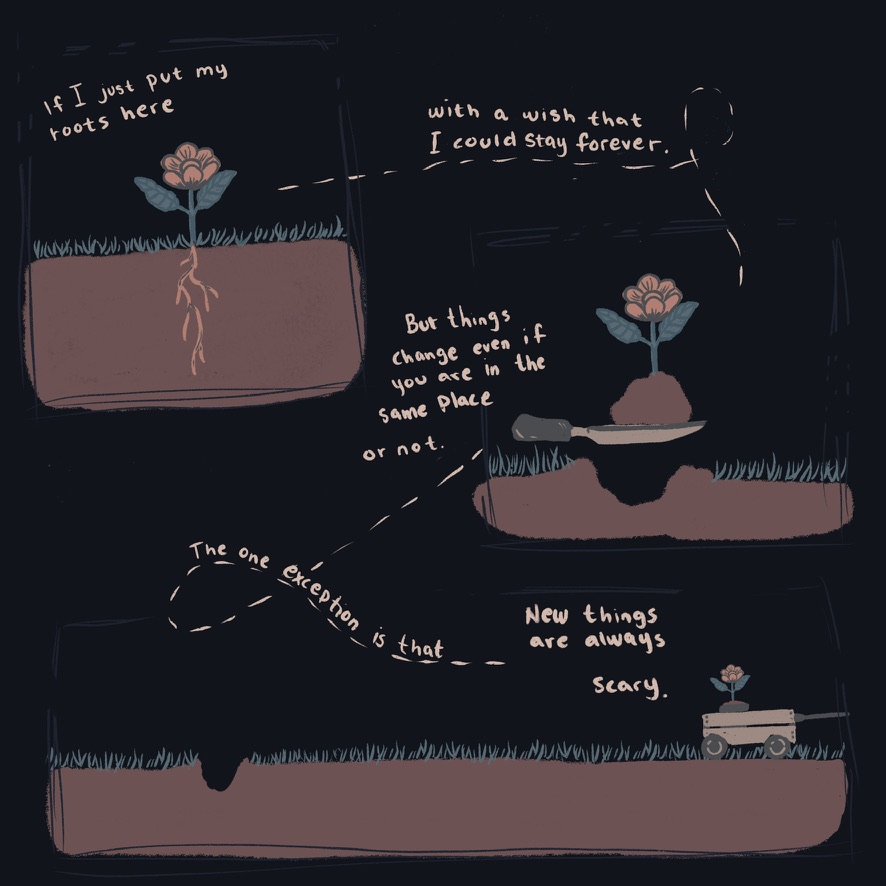 If I just put my
roots here
with a wish that
I could stay forever.
But things
change even if
you are in the
same place
or not.
The one exception is that
New things
are always
scary.